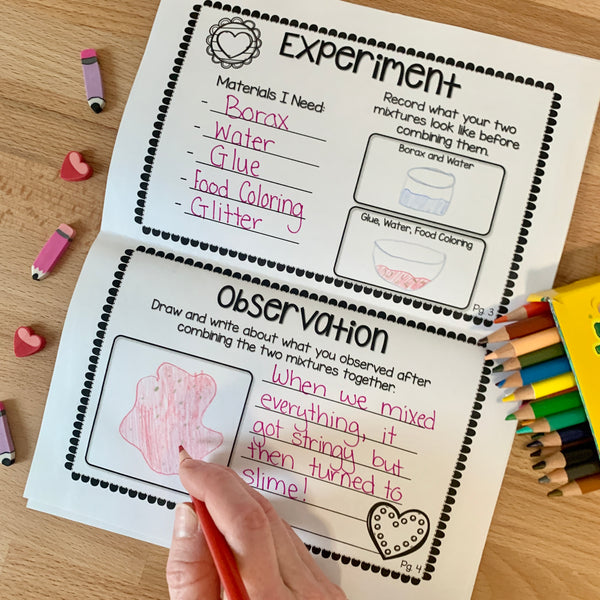 Experiment
Materials I Need:
- Borax
- Water
- Glue
- Food Coloring
- Glitter
Record what your two
mixtures look like before
combining them.
Borax and Water
Glue, Water, Food Coloring
Pg. 3
Observation
Draw and write about what you observed after
combining the two mixtures together.
When we mixed
everything, it
got stringy but
then turned to
slime!
Pg. 4